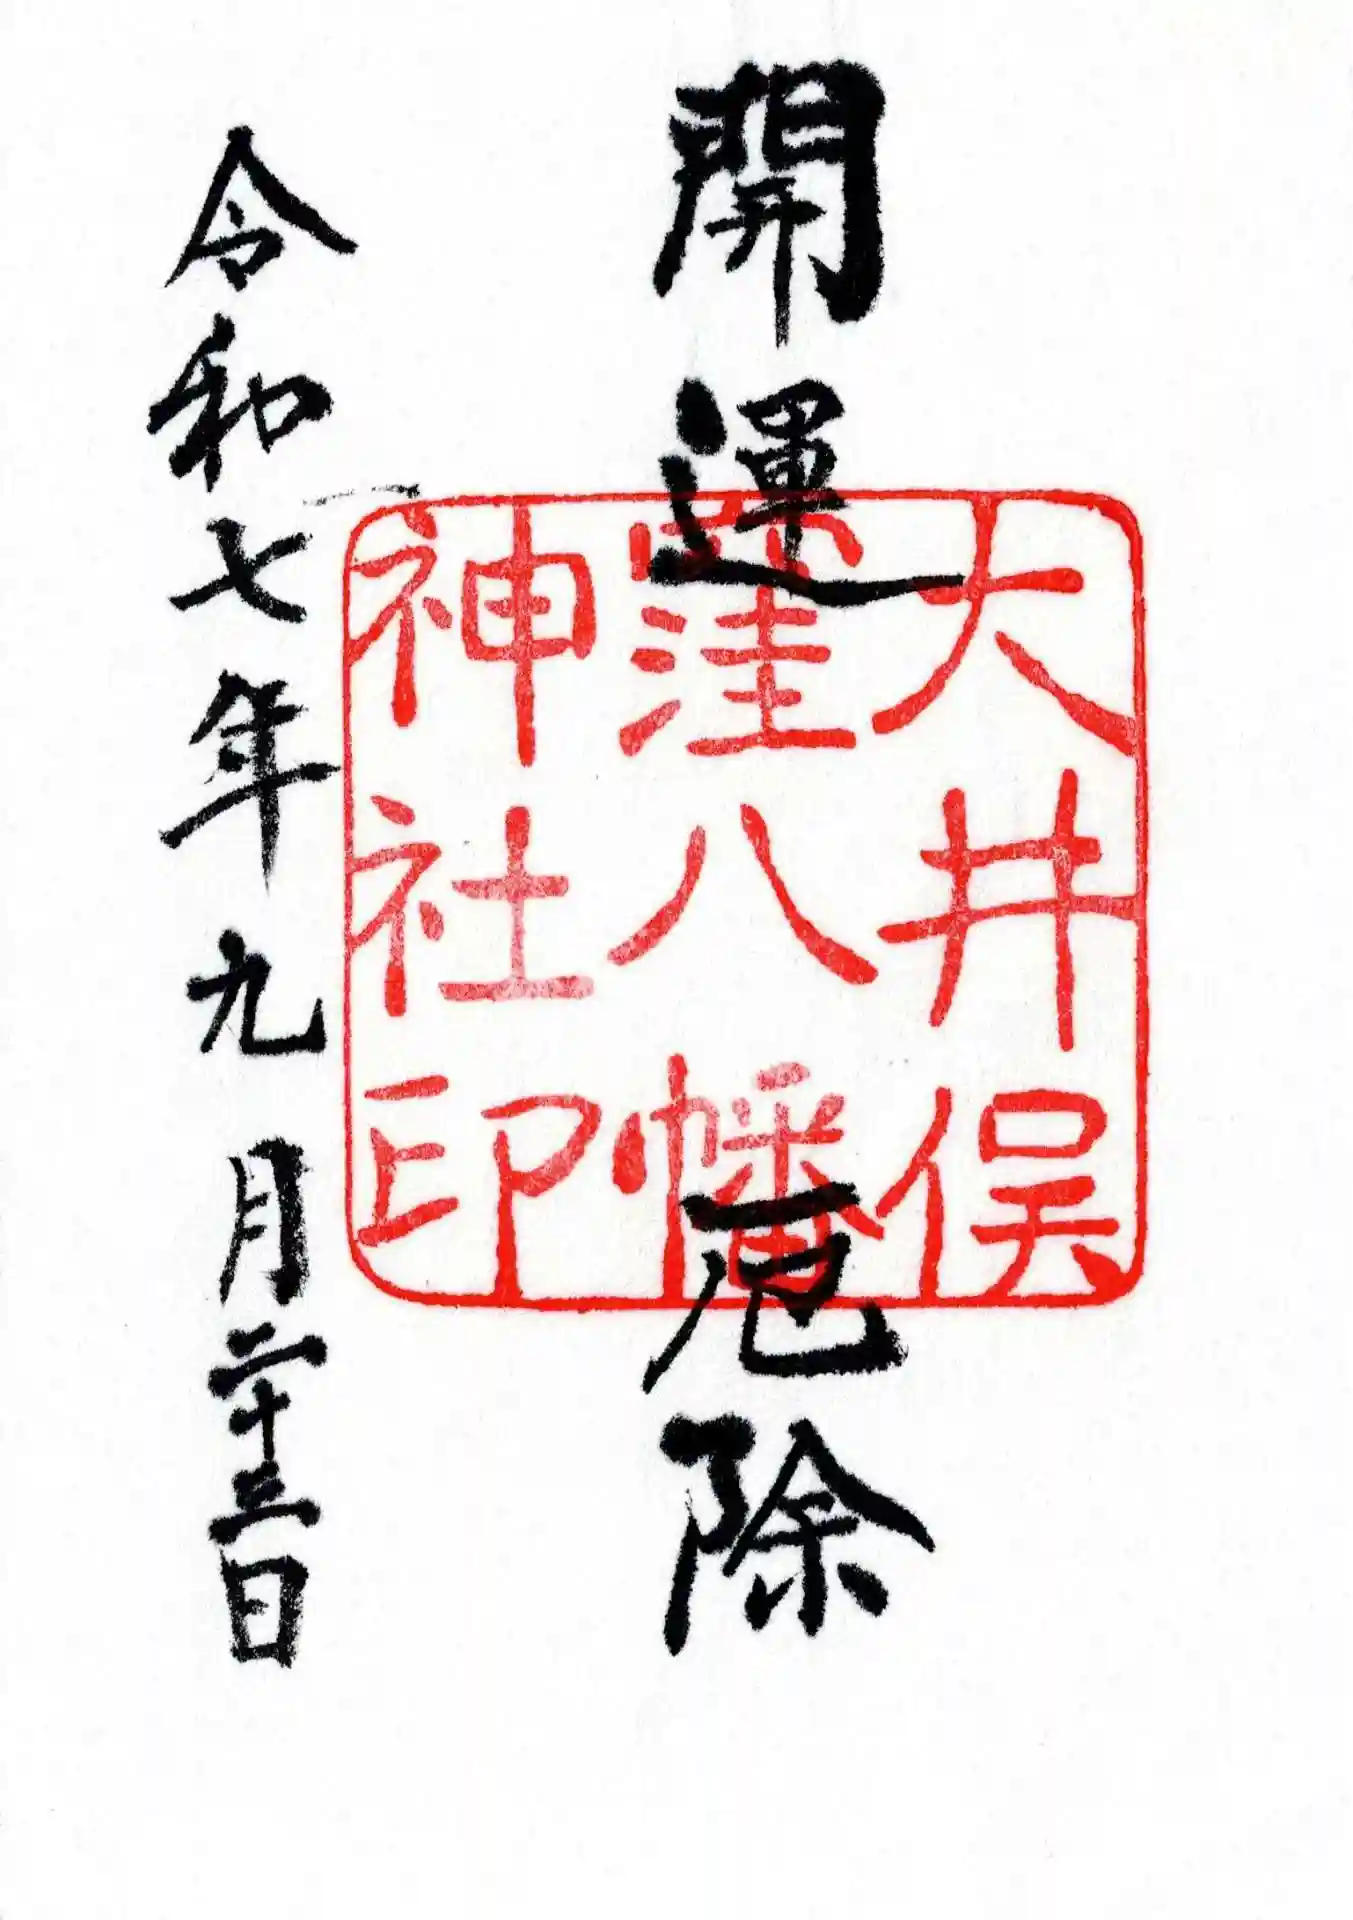 開運厄除
大井俣
窪八幡
神社印
令和七年九月二十三日